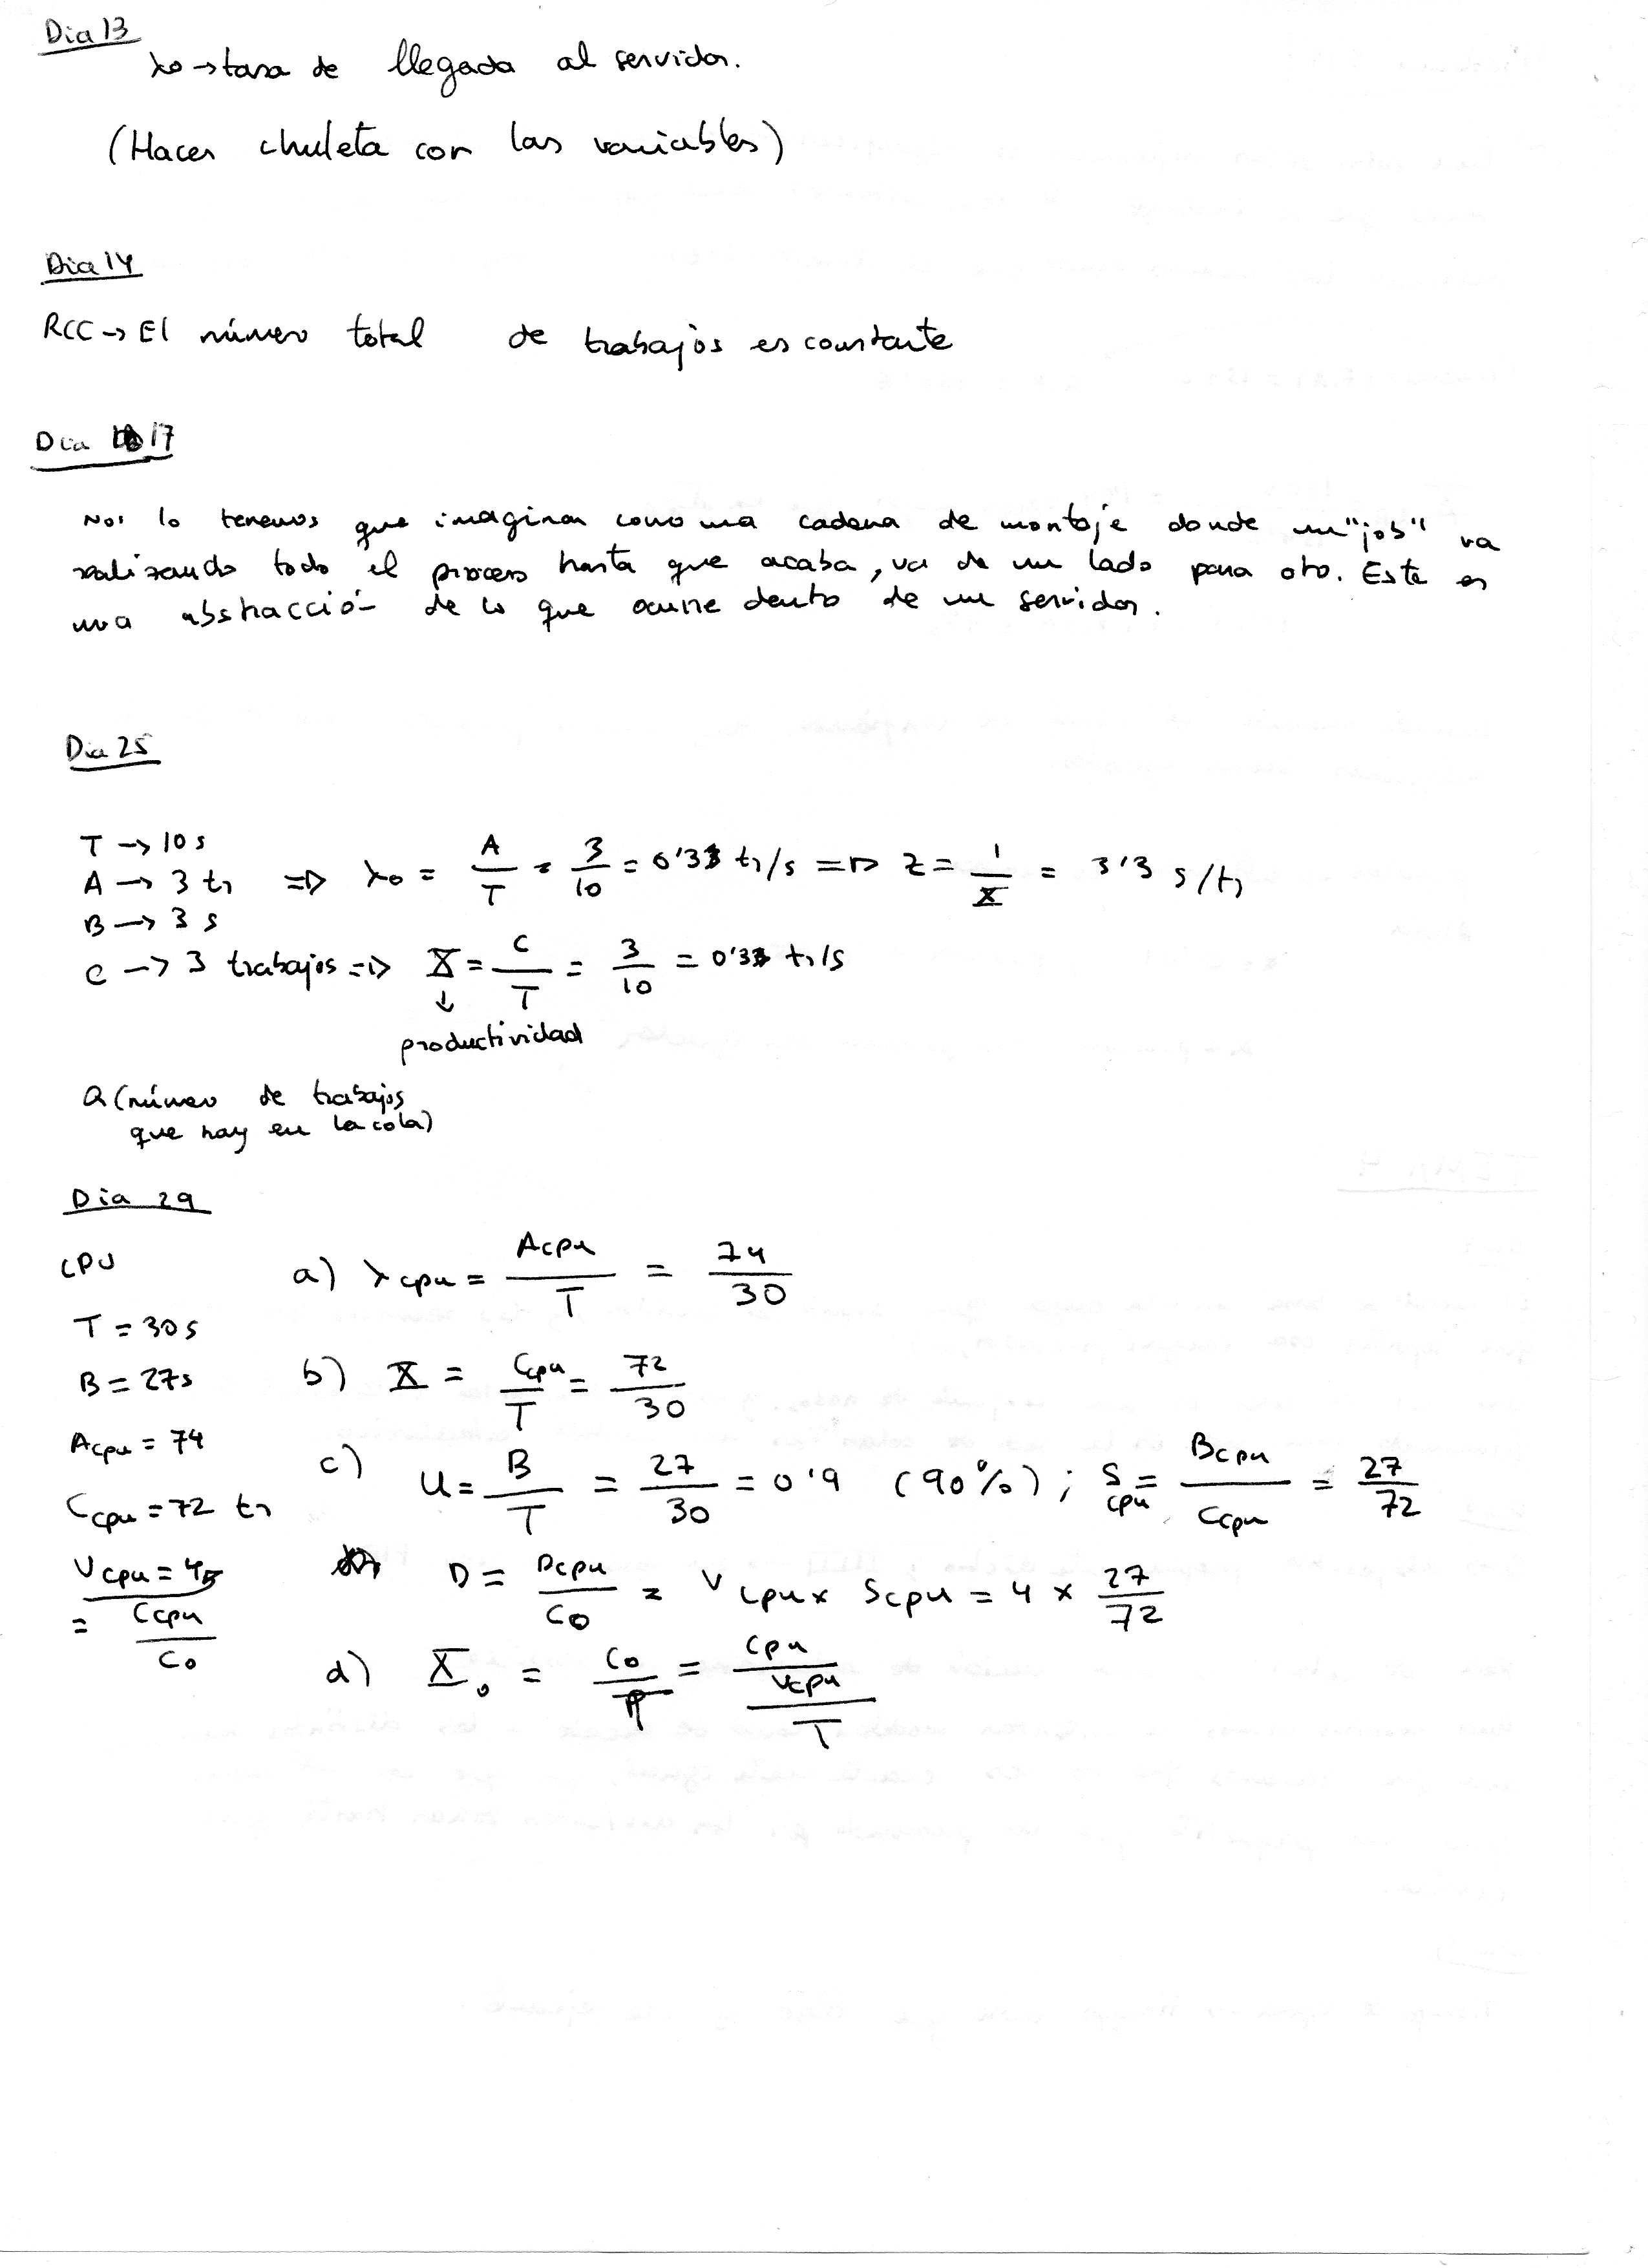 Dia 13
λo → tasa de llegada al servidor.
(Hacer chuleta con las variables)
Dia 14
RCC → El número total de trabajos es constante
Dia 17
Nos lo tenemos que imaginar como una cadena de montaje donde un "job" va
realizando todo el proceso hasta que acaba, va de un lado para otro. Este es
una abstracción de lo que ocurre dentro de un servidor.
Dia 25
T → 10 s
A → 3 tr => λo = A/T = 3/10 = 0'33 tr/s => Z = 1/X = 3'3 s/tr
B → 3 s
C → 3 trabajos => X = C/T = 3/10 = 0'33 tr/s
↓
productividad
Q (número de trabajos
que hay en la cola)
Dia 29
CPU
a) λcpu = Acpu/T = 74/30
T = 30s
b) X = Ccpu/T = 72/30
B = 27s
Acpu = 74
c) U = B/T = 27/30 = 0'9 (90%) ; Scpu = Bcpu/Ccpu = 27/72
Ccpu = 72 tr
Vcpu = 4
= Ccpu/Co
D = Bcpu/Co = Vcpu x Scpu = 4 x 27/72
d) Xo = Co/T = cpu/Vcpu/T